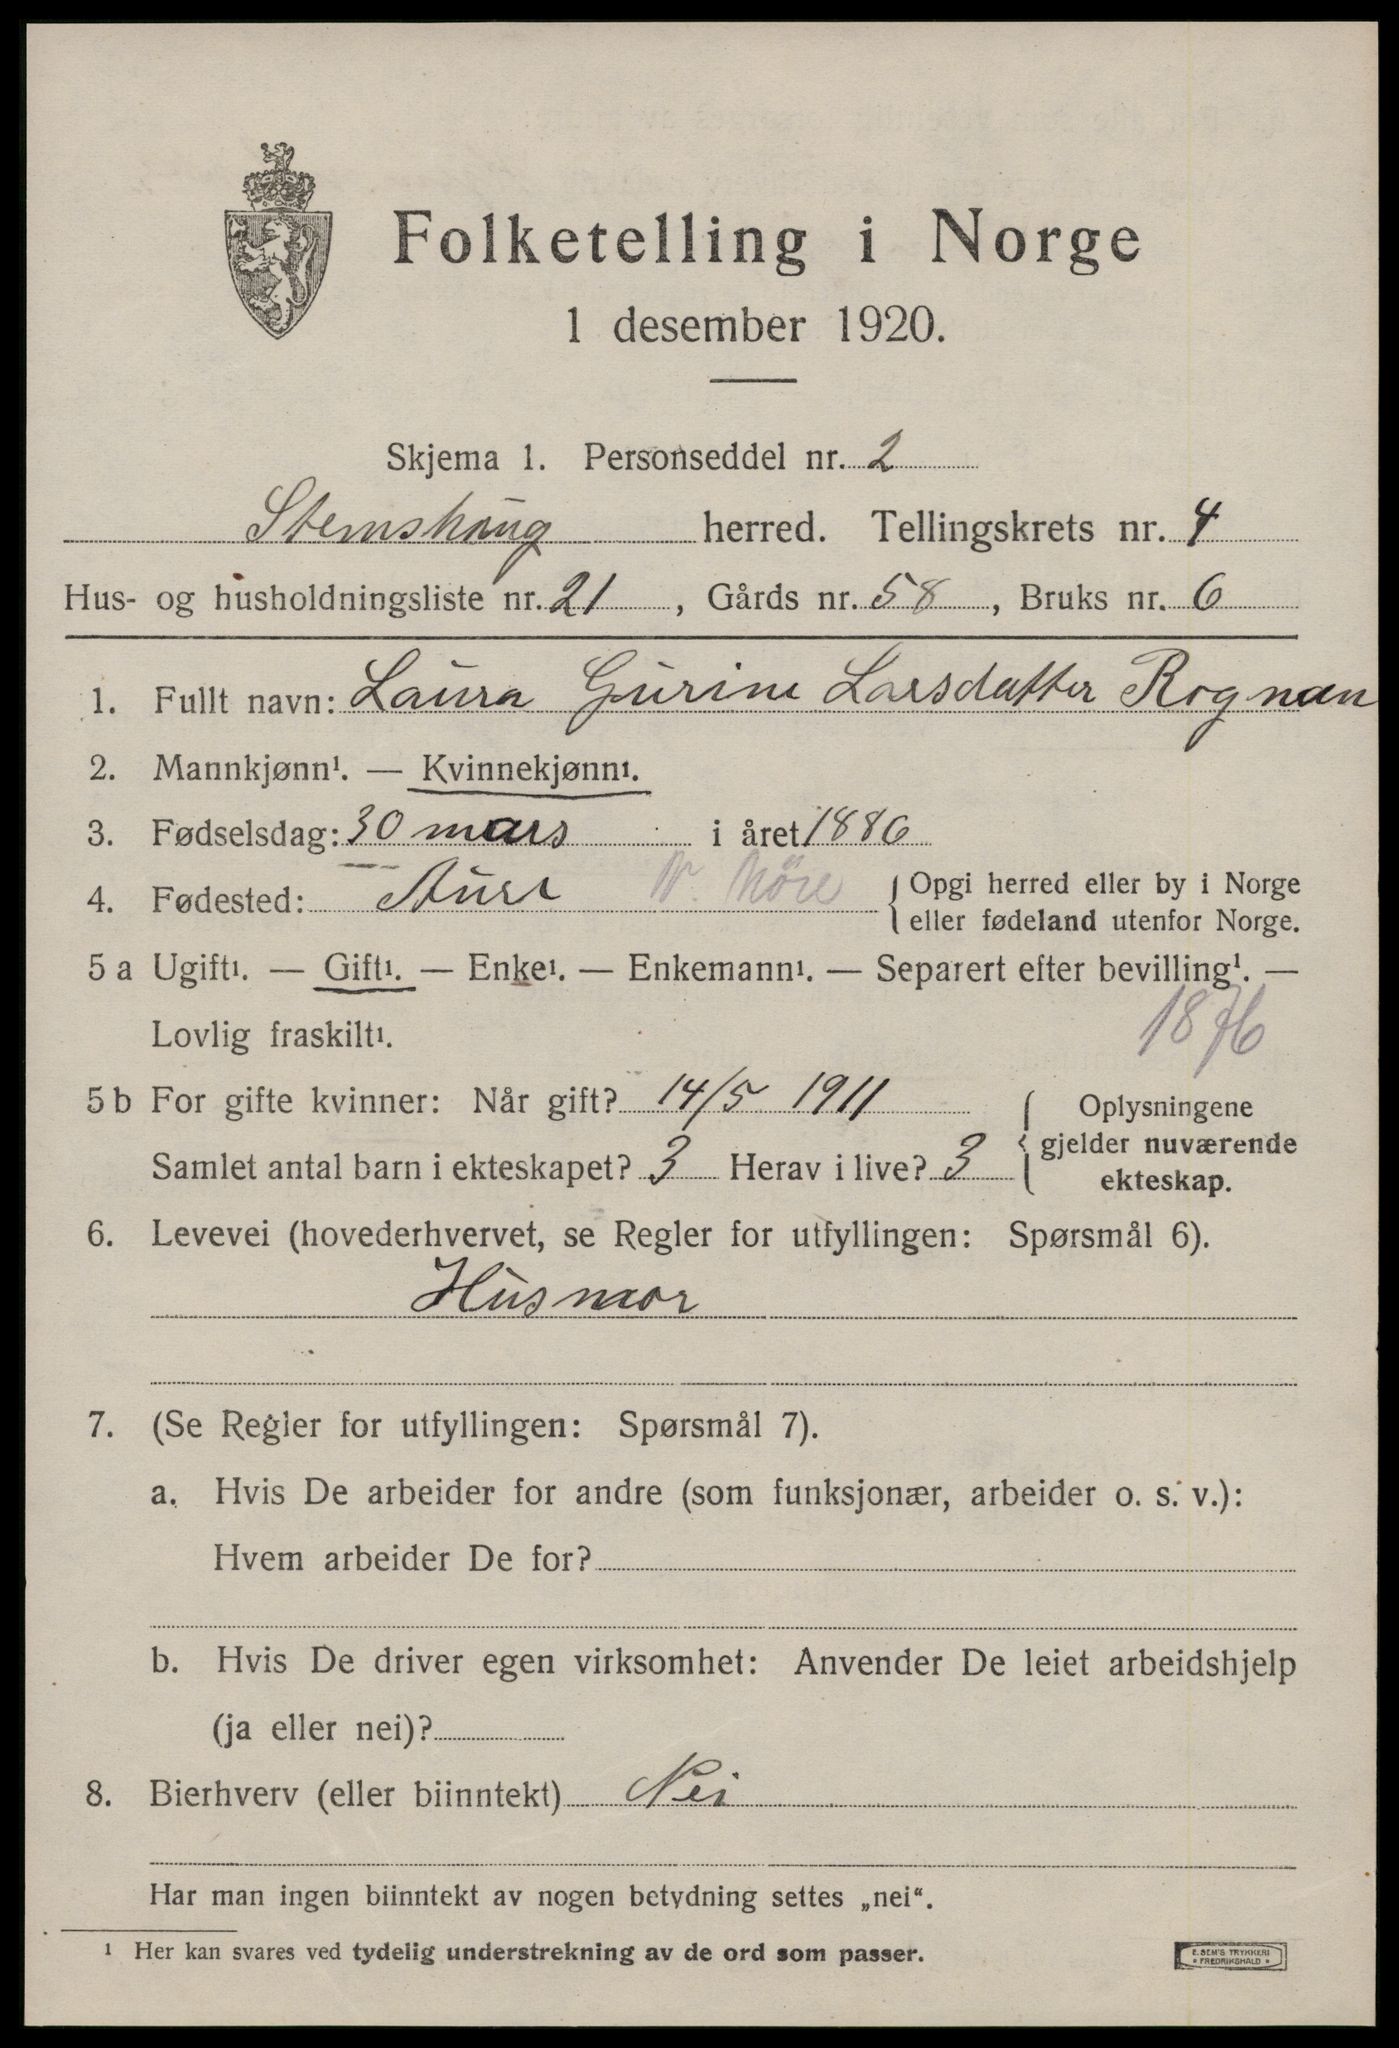 Folketelling i Norge
1 desember 1920.
Skjema 1. Personseddel nr. 2
Stemshaug herred. Tellingskrets nr. 4
Hus- og husholdningsliste nr. 21, Gårds nr. 58, Bruks nr. 6
1. Fullt navn: Laura Gurine Larsdatter Rognan
2. Mannkjønn¹. — Kvinnekjønn¹.
3. Fødselsdag: 30 mars i året 1886
4. Fødested: Aure N. Möre { Opgi herred eller by i Norge
eller fødeland utenfor Norge.
5 a Ugift¹. — Gift¹. — Enke¹. — Enkemann¹. — Separert efter bevilling¹. —
Lovlig fraskilt¹. 1876
5 b For gifte kvinner: Når gift? 14/5 1911
Samlet antal barn i ekteskapet? 3 Herav i live? 3
{ Oplysningene
gjelder nuværende
ekteskap.
6. Levevei (hovederhvervet, se Regler for utfyllingen: Spørsmål 6).
Husmor
7. (Se Regler for utfyllingen: Spørsmål 7).
a. Hvis De arbeider for andre (som funksjonær, arbeider o. s. v.):
Hvem arbeider De for?
b. Hvis De driver egen virksomhet: Anvender De leiet arbeidshjelp
(ja eller nei)?
8. Bierhverv (eller biinntekt) Nei
Har man ingen biinntekt av nogen betydning settes „nei“.
¹ Her kan svares ved tydelig understrekning av de ord som passer.
E. SEM'S TRYKKERI
• FREDRIKSHALD •